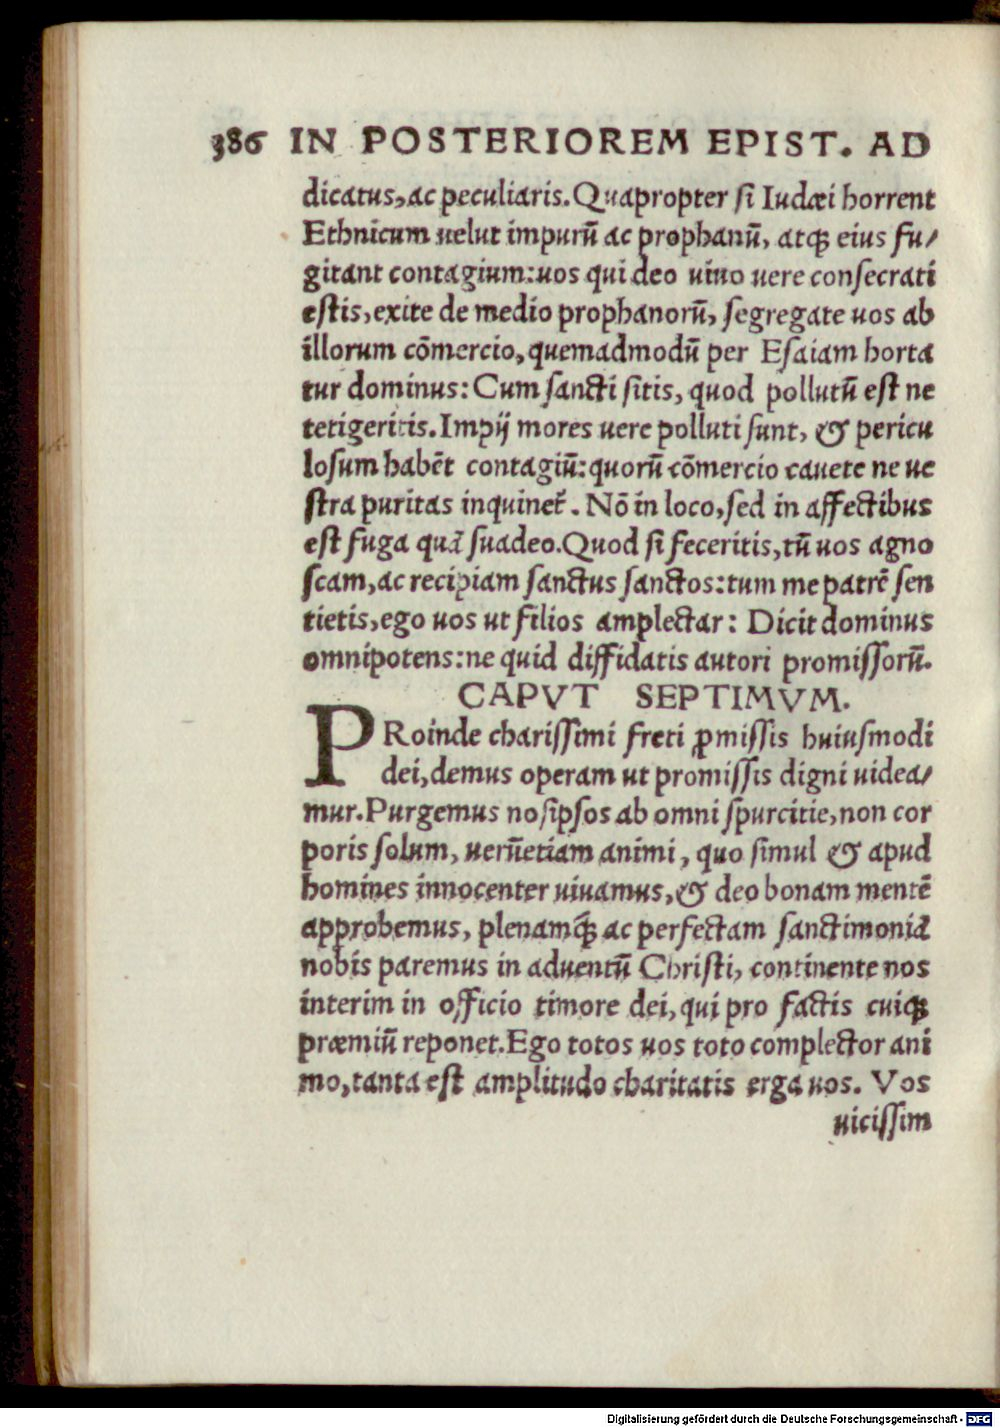 386 IN POSTERIOREM EPIST. AD
dicatus, ac peculiaris. Quapropter ſi Iudæi horrent
Ethnicum uelut impurū ac prophanū, atq; eius fu/
gitant contagium: uos qui deo uiuo uere conſecrati
eſtis, exite de medio prophanorū, ſegregate uos ab
illorum cōmercio, quemadmodū per Eſaiam horta
tur dominus: Cum ſancti ſitis, quod pollutū eſt ne
tetigeritis. Impij mores uere polluti ſunt, & pericu
loſum habēt contagiū: quorū cōmercio cauete ne ue
ſtra puritas inquinet᷑. Nō in loco, ſed in affectibus
eſt fuga quā ſuadeo. Quod ſi feceritis, tū uos agno
ſcam, ac recipiam ſanctus ſanctos: tum me patrē ſen
tietis, ego uos ut filios amplectar: Dicit dominus
omnipotens: ne quid diffidatis autori promiſſorū.
CAPVT SEPTIMVM.
PRoinde chariſſimi freti ꝓmiſſis huiuſmodi
dei, demus operam ut promiſſis digni uidea/
mur. Purgemus noſipſos ab omni ſpurcitie, non cor
poris ſolum, uerūetiam animi, quo ſimul & apud
homines innocenter uiuamus, & deo bonam mentē
approbemus, plenamq; ac perfectam ſanctimoniā
nobis paremus in aduentū Chriſti, continente nos
interim in officio timore dei, qui pro factis cuiq;
præmiū reponet. Ego totos uos toto complector ani
mo, tanta eſt amplitudo charitatis erga uos. Vos
uiciſſim
Digitalisierung gefördert durch die Deutsche Forschungsgemeinschaft - DFG